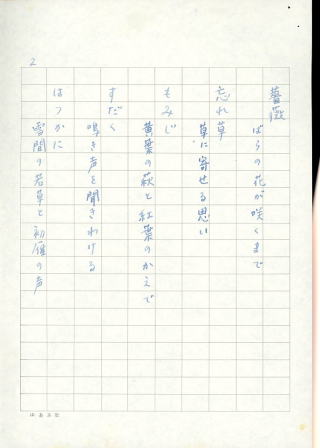 薔薇
ばらの花が咲くまで
忘れ草
草に寄せる思い
もみじ
黄葉の萩と紅葉のかえで
すだく
鳴き声を聞きわける
はつかに
雪間の若草と初雁の声
2